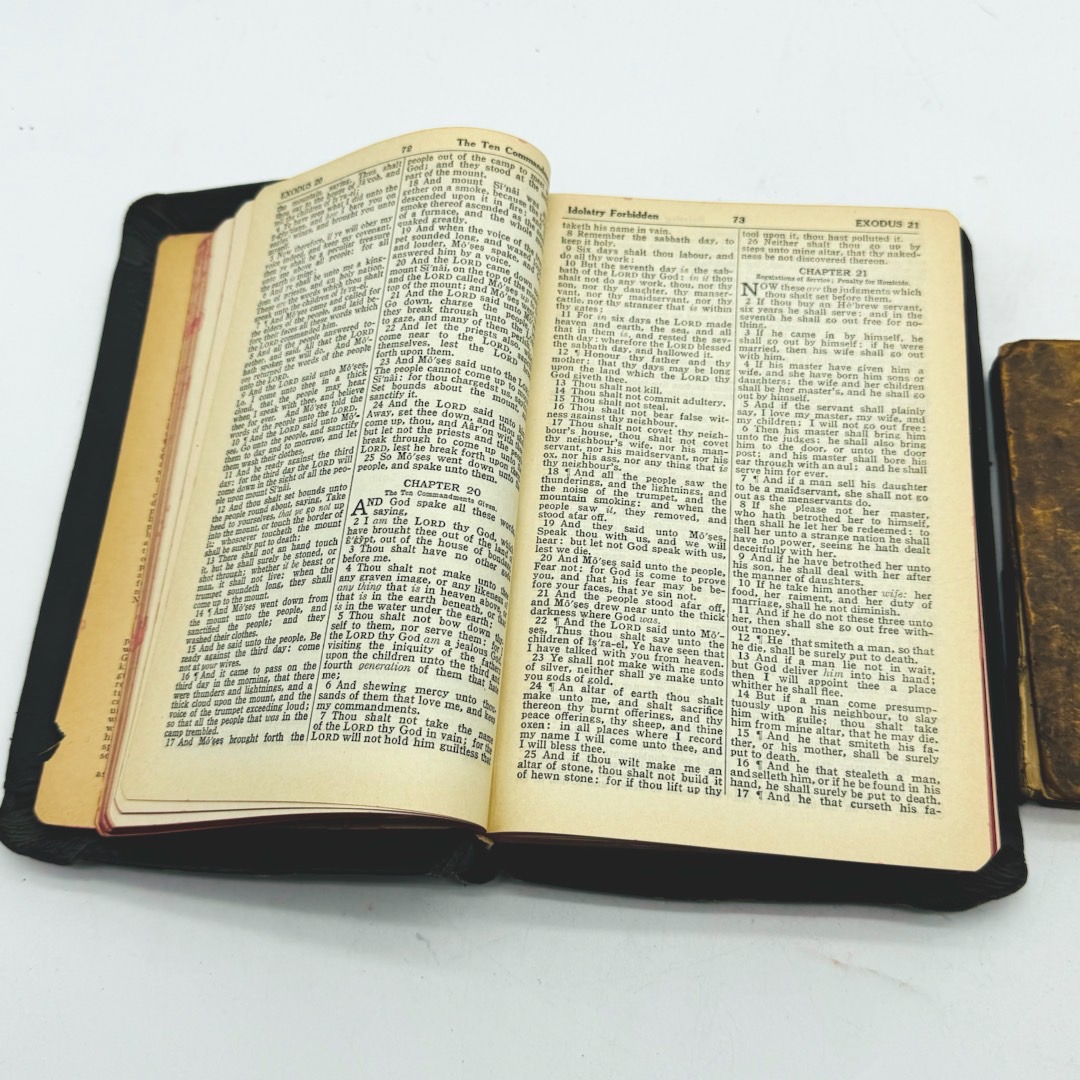 EXODUS 20
72
The Ten Command
the mountain, saying, Thus shalt
Now therefore, if ye will obey my
7 And Mō'ses came and called for
the elders of the people
8 And all the people answered to-
unto the LORD.
9 And the LORD said unto Mō'ses,
Lo, I come unto thee in a thick
cloud, that the people may hear
when I speak with thee, and believe
thee for ever. And Mō'ses told the
words of the people unto the LORD.
10 ¶ And the LORD said unto Mō'-
ses, Go unto the people, and sanctify
them to day and to morrow, and let
them wash their clothes,
11 And be ready against the third
day: for the third day the LORD will
come down in the sight of all the peo-
ple upon mount Sī'nāi.
12 And thou shalt set bounds unto
the people round about, saying, Take
heed to yourselves, that ye go not up
into the mount, or touch the border of
it: whosoever toucheth the mount
shall be surely put to death:
13 There shall not an hand touch
it, but he shall surely be stoned, or
shot through; whether it be beast or
man, it shall not live: when the
trumpet soundeth long, they shall
come up to the mount.
14 ¶ And Mō'ses went down from
the mount unto the people, and
sanctified the people; and they
washed their clothes.
15 And he said unto the people, Be
ready against the third day: come
not at your wives.
16 ¶ And it came to pass on the
third day in the morning, that there
were thunders and lightnings, and a
thick cloud upon the mount, and the
voice of the trumpet exceeding loud;
so that all the people that was in the
camp trembled.
17 And Mō'ses brought forth the
people out of the camp to meet
God; and they stood at the
part of the mount.
18 And mount Sī'nāi was
gether on a smoke, because
descended upon it in fire: and
smoke thereof ascended as the
of a furnace, and the whole
quaked greatly.
19 And when the voice of the
pet sounded long, and waxed
and louder, Mō'ses spake, and
answered him by a voice.
20 And the LORD came down
mount Sī'nāi, on the top of the
and the LORD called Mō'ses up
top of the mount; and Mō'ses
21 And the LORD said unto
Go down, charge the people,
they break through unto the
to gaze, and many of them
22 And let the priests also,
come near to the LORD,
themselves, lest the LORD
forth upon them.
23 And Mō'ses said unto the
The people cannot come up to
Sī'nāi: for thou chargedst us,
Set bounds about the mount,
sanctify it.
24 And the LORD said unto
Away, get thee down, and thou
come up, thou, and Aâr'on with
but let not the priests and the
break through to come up unto
LORD, lest he break forth upon
25 So Mō'ses went down unto
people, and spake unto them.
CHAPTER 20
The Ten Commandments Given.
AND God spake all these words
saying,
2 I am the LORD thy God, which
have brought thee out of the land
Ē'ġўpt, out of the house of bondage
3 Thou shalt have no other gods
before me.
4 Thou shalt not make unto
any graven image, or any likeness
any thing that is in heaven above,
that is in the earth beneath, or
is in the water under the earth:
5 Thou shalt not bow down
self to them, nor serve them: for
the LORD thy God am a jealous
visiting the iniquity of the fathers
upon the children unto the third and
fourth generation of them that hate
me;
6 And shewing mercy unto thou-
sands of them that love me, and keep
my commandments.
7 Thou shalt not take the name
of the LORD thy God in vain; for the
LORD will not hold him guiltless that
Idolatry Forbidden
73
EXODUS 21
taketh his name in vain.
8 Remember the sabbath day, to
keep it holy.
9 Six days shalt thou labour, and
do all thy work:
10 But the seventh day is the sab-
bath of the LORD thy God: in it thou
shalt not do any work, thou, nor thy
son, nor thy daughter, thy manser-
vant, nor thy maidservant, nor thy
cattle, nor thy stranger that is within
thy gates:
11 For in six days the LORD made
heaven and earth, the sea, and all
that in them is, and rested the sev-
enth day: wherefore the LORD blessed
the sabbath day, and hallowed it.
12 ¶ Honour thy father and thy
mother: that thy days may be long
upon the land which the LORD thy
God giveth thee.
13 Thou shalt not kill.
14 Thou shalt not commit adultery.
15 Thou shalt not steal.
16 Thou shalt not bear false wit-
ness against thy neighbour.
17 Thou shalt not covet thy neigh-
bour's house, thou shalt not covet
thy neighbour's wife, nor his man-
servant, nor his maidservant, nor his
ox, nor his ass, nor any thing that is
thy neighbour's.
18 ¶ And all the people saw the
thunderings, and the lightnings, and
the noise of the trumpet, and the
mountain smoking: and when the
people saw it, they removed, and
stood afar off.
19 And they said unto Mō'ses,
Speak thou with us, and we will
hear: but let not God speak with us,
lest we die.
20 And Mō'ses said unto the people,
Fear not: for God is come to prove
you, and that his fear may be be-
fore your faces, that ye sin not.
21 And the people stood afar off,
and Mō'ses drew near unto the thick
darkness where God was.
22 ¶ And the LORD said unto Mō'-
ses, Thus thou shalt say unto the
children of Iṣ'ra-el, Ye have seen that
I have talked with you from heaven.
23 Ye shall not make with me gods
of silver, neither shall ye make unto
you gods of gold.
24 ¶ An altar of earth thou shalt
make unto me, and shalt sacrifice
thereon thy burnt offerings, and thy
peace offerings, thy sheep, and thine
oxen: in all places where I record
my name I will come unto thee, and
I will bless thee.
25 And if thou wilt make me an
altar of stone, thou shalt not build it
of hewn stone: for if thou lift up thy
tool upon it, thou hast polluted it.
26 Neither shalt thou go up by
steps unto mine altar, that thy naked-
ness be not discovered thereon.
CHAPTER 21
Regulations of Service; Penalty for Homicide.
NOW these are the judgments which
thou shalt set before them.
2 If thou buy an Hē'brew servant,
six years he shall serve: and in the
seventh he shall go out free for no-
thing.
3 If he came in by himself, he
shall go out by himself: if he were
married, then his wife shall go out
with him.
4 If his master have given him a
wife, and she have born him sons or
daughters; the wife and her children
shall be her master's, and he shall go
out by himself.
5 And if the servant shall plainly
say, I love my master, my wife, and
my children; I will not go out free:
6 Then his master shall bring him
unto the judges; he shall also bring
him to the door, or unto the door
post; and his master shall bore his
ear through with an aul; and he shall
serve him for ever.
7 ¶ And if a man sell his daughter
to be a maidservant, she shall not go
out as the menservants do.
8 If she please not her master,
who hath betrothed her to himself,
then shall he let her be redeemed: to
sell her unto a strange nation he shall
have no power, seeing he hath dealt
deceitfully with her.
9 And if he have betrothed her unto
his son, he shall deal with her after
the manner of daughters.
10 If he take him another wife; her
food, her raiment, and her duty of
marriage, shall he not diminish.
11 And if he do not these three unto
her, then shall she go out free with-
out money.
12 ¶ He that smiteth a man, so that
he die, shall be surely put to death.
13 And if a man lie not in wait,
but God deliver him into his hand;
then I will appoint thee a place
whither he shall flee.
14 But if a man come presump-
tuously upon his neighbour, to slay
him with guile; thou shalt take
him from mine altar, that he may die.
15 ¶ And he that smiteth his fa-
ther, or his mother, shall be surely
put to death.
16 ¶ And he that stealeth a man,
and selleth him, or if he be found in his
hand, he shall surely be put to death.
17 ¶ And he that curseth his fa-